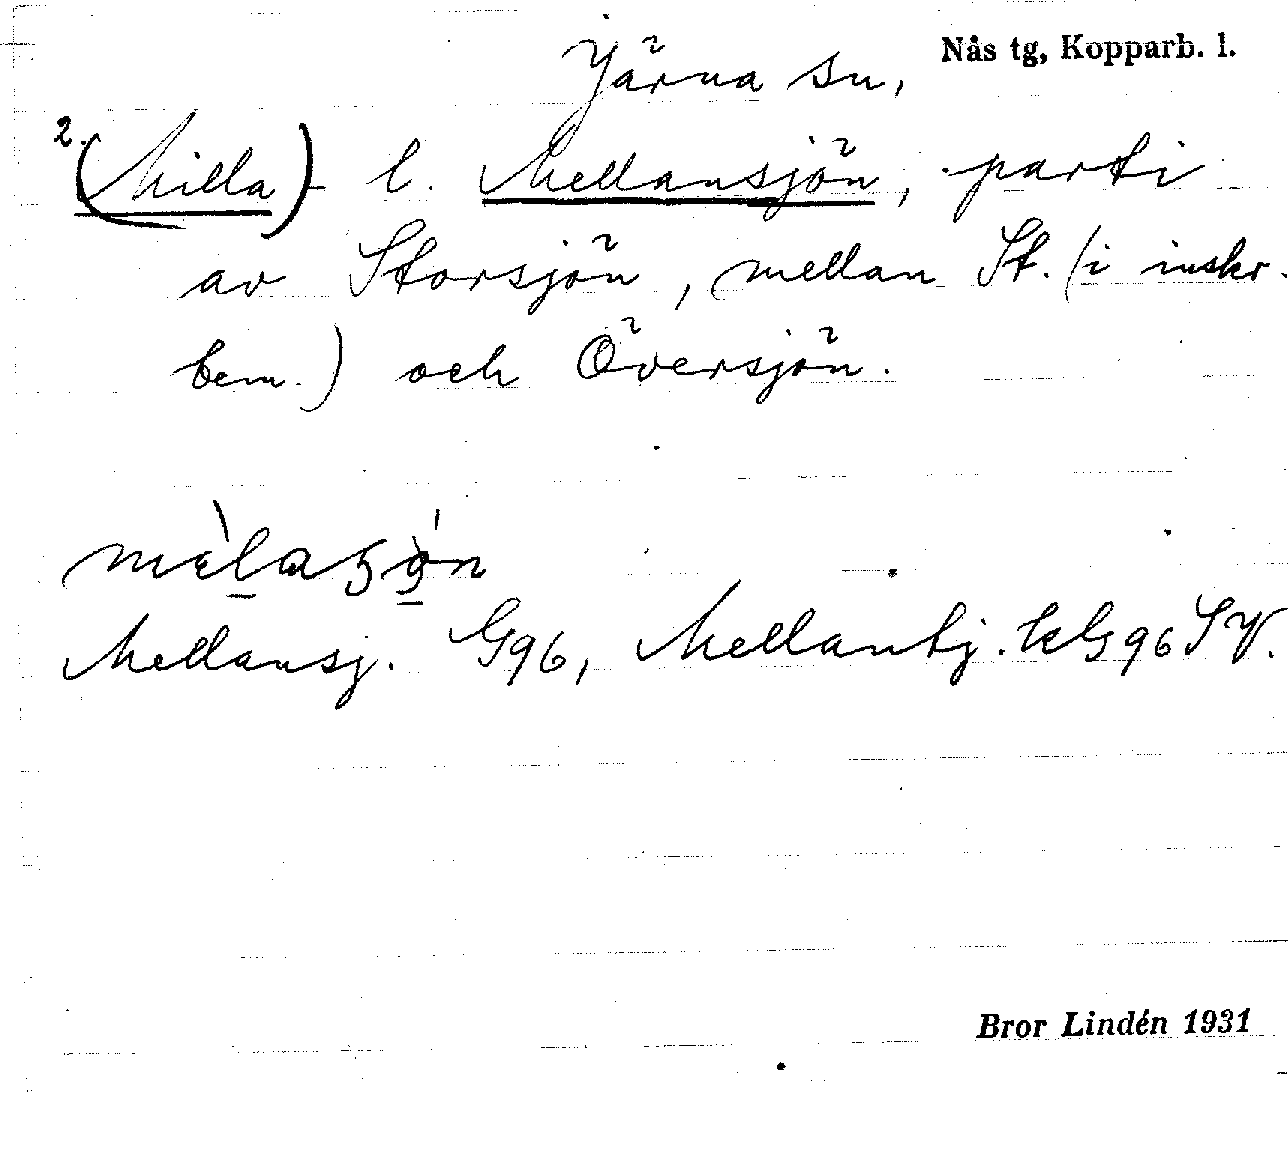 Nås tg, Kopparb. l.
Järna sn,
2. (Milla) l. Mellansjön, parti
av Storsjön, mellan St. (i inskr.
bem.) och Översjön.
Mellansj. G96, Mellantj. kG96SV.
Bror Lindén 1931